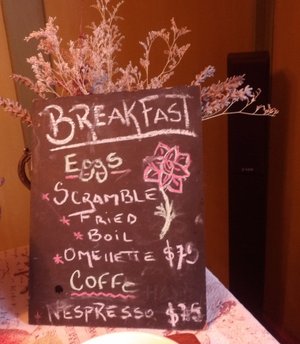 BREAKFAST
EGGS
* SCRAMBLE
* FRIED
* BOIL
* OMELLETTE $75
COFFE
* NESPRESSO $25